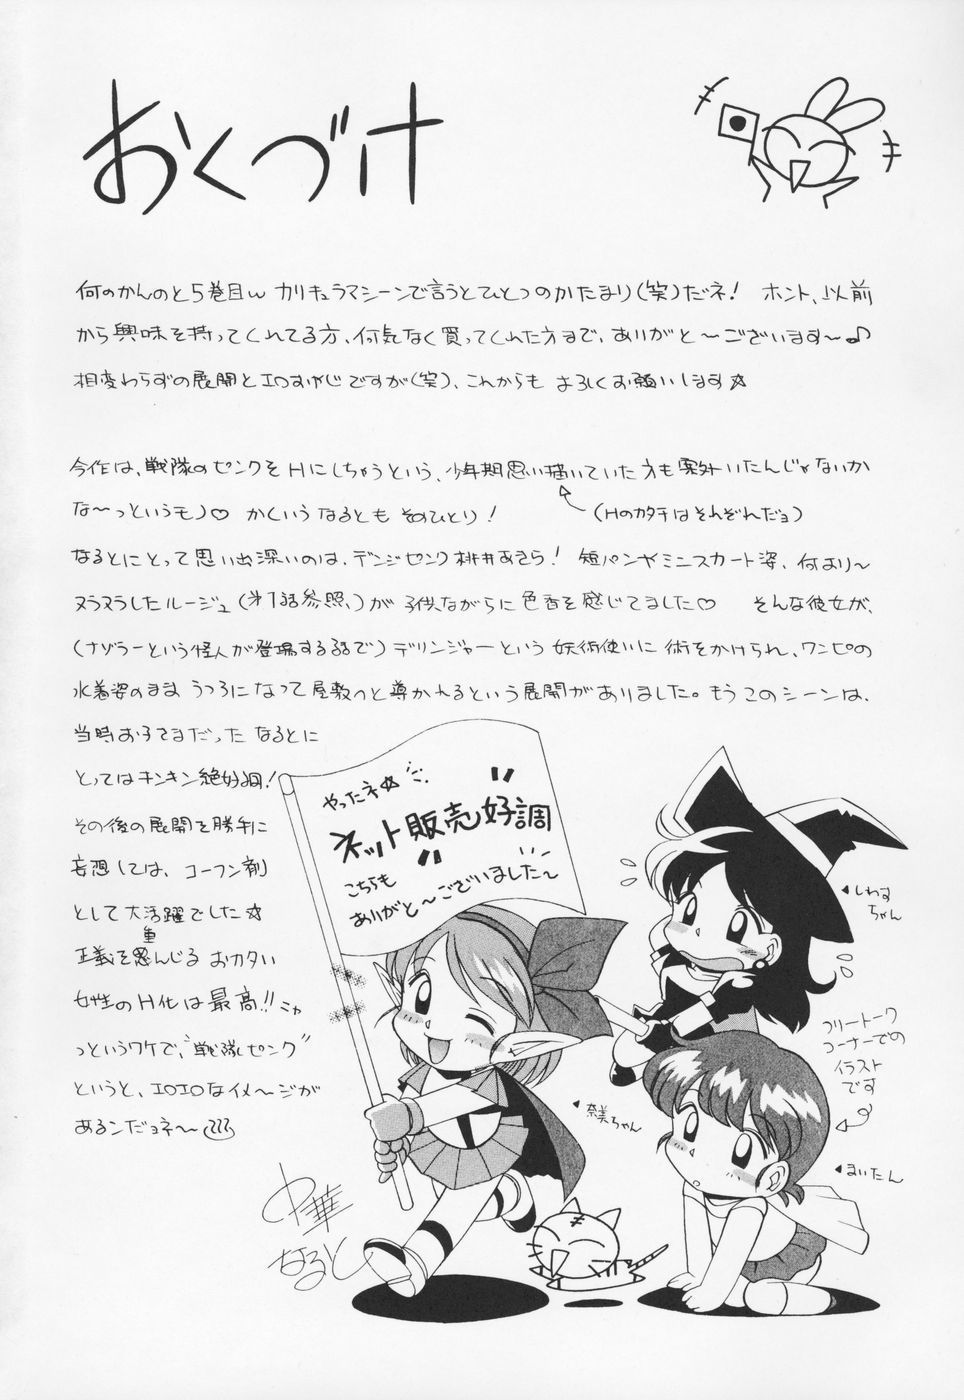 おくづけ
何のかんのと5巻目w カリキュラマシーンで言うとひとつのかたまり(笑)だネ! ホント、以前
から興味を持ってくれてる方、何気なく買ってくれた方まで、ありがと〜ございます〜♪
相変わらずの展開とエロオヤジですが(笑)、これからも よろしくお願いします☆
今作は、戦隊のピンクをHにしちゃうという、少年期思い描いていた方も案外いたんじゃないか
な〜っというモノ♡ かくいうなるとも そのひとり!
(Hのカタチはそれぞれだョ)
なるとにとって思い出深いのは、デンジピンク 桃井あきら! 短パンやミニスカート姿、何より〜
ヌラヌラしたルージュ(第1話参照、)が 子供ながらに 色香を感じてました♡ そんな彼女が、
(ナゾラーという怪人が登場する話で)デリンジャーという 妖術使いに 術をかけられ、ワンピの
水着姿のまま うつろになって屋敷へと導かれるという展開がありました。もうこのシーンは、
当時お子さまだった なるとに
とってはキンキン絶好調!
その後の展開を勝手に
妄想しては、コーフン剤
として大活躍でした☆
正義を重んじる おカタい
女性のH化は最高!!ニャ
っというワケで、“戦隊ピンク”
というと、エロエロなイメ〜ジが
あるンだョネ〜
やったネ☆
"ネット販売好調"
こちらも
ありがと〜ございました〜
しわす
ちゃん
フリートーク
コーナーでの
イラスト
です
奈美ちゃん
まいたん
中華
なると